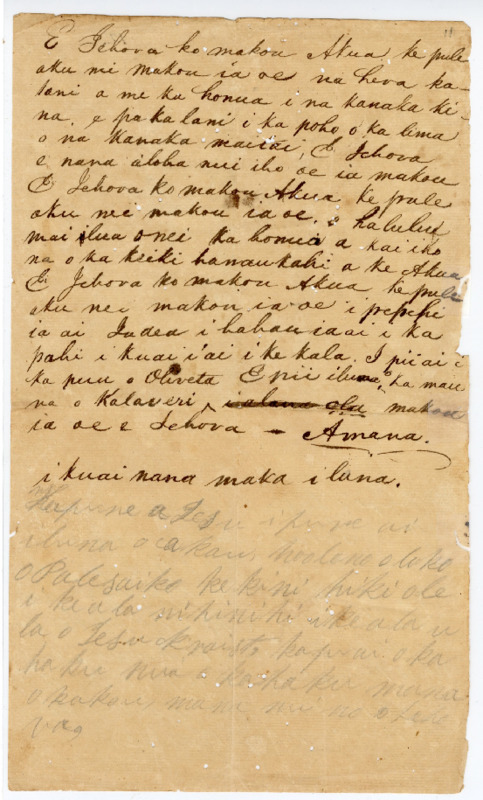 11
E Jehova ko makou Akua ke pule
aku nei makou ia oe na heva ka-
lani a me ka honua i na kanaka ki-
na, e paka lani i ka poho o ka lima
o na kanaka maitai, E Jehova
e nana aloha nui iho oe ia makou
E Jehova ko makou Akua ke pule
aku nei makou ia oe, e halulu
mai ilua o nei ka honua a ka iko
na o ka keiki hanau kahi a ke Akua
E Jehova ko makou Akua ke pule
aku nei makou ia oe i pepehi
ia ai Iudea i hahau ia ai i ka
pahi i kuai i'ai i ke kala. I pii ai i
ka puu o Oliveta E pii iluna, ka mau
na o Kalaveri makou
ia oe e Jehova — Amana.
i kuai nana maka i luna.
Ka pule a Jesu i pule ai
iluna o ka hoolono o loko
o Palesaiko ke kini hiki ole
i ke ala nihinihi i ke ala u
la o Jesu Kraist ka puai o ka
haku nui o ka haku mana
o kakou, mana nui no o